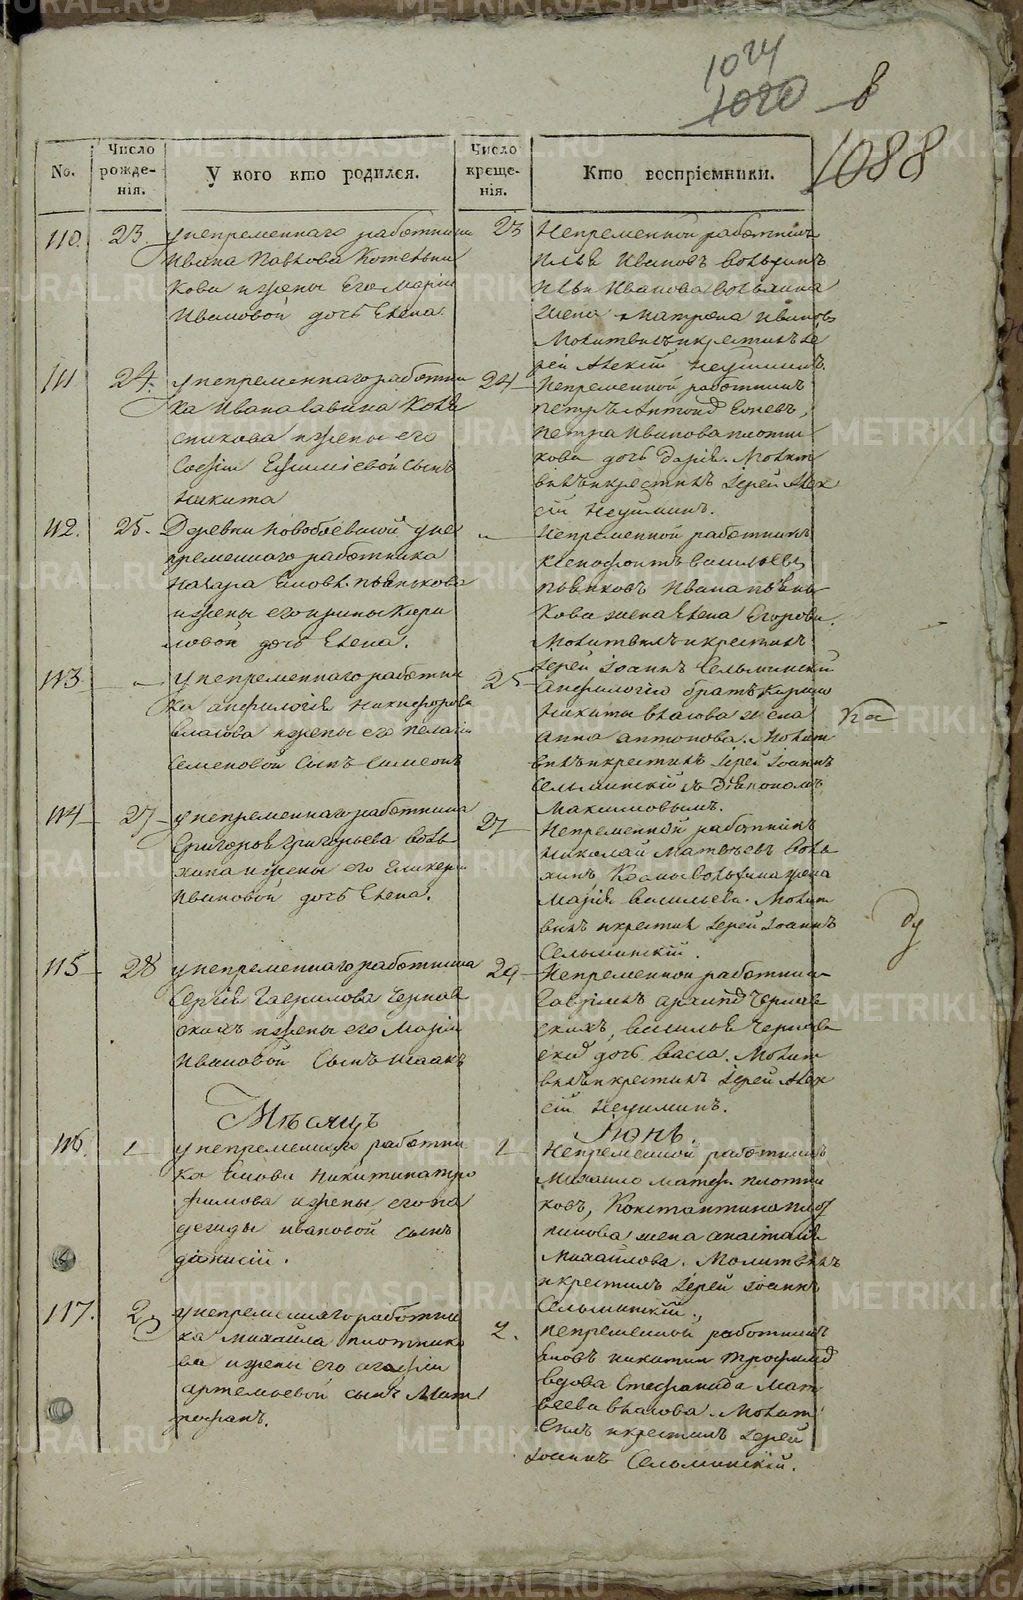 1024
1020
в
1088
No.
Число рожде-нія.
У кого кто родился.
Число креще-нія.
Кто воспріемники.
110. 23. у непременнаго работника
Ивана Павлова Котельни
кова и жены Его Маріи
Ивановой дочь Елена.
23 Непременной работникъ
Илья Ивановъ Волхинъ
Ильи Иванова Вольхина
жена Матрена Иванов
Молитвилъ и крестилъ Іе
рей Алексій Неуйминъ.
111 24. у непременнаго работни
ка Ивана Савина Коле
сникова и жены его
Софіи Ефиміевой сынъ
Никита
24 Непременной работникъ
Петръ
Петра Иванова плотни
кова дочь Дарія. Молит
вилъ и крестилъ Іерей Алек
сій Неуйминъ.
112. 25. Деревни у не
пременнаго работника
Назара Пьянкова
и жены его Ирины Кири
ловой дочь Елена.
" Непременной работникъ
Ксенофонтъ Васильевъ
Пьянковъ Ивана Пьян
кова жена Елена Егорова.
Молитвилъ и крестилъ
Іерей Іоаннъ Сельминскій
113 — У непременнаго работни
ка Анфилогія Никифорова
Власова и жены его Пелагіи
Семеновой Сынъ Симеонъ
25 Анфилогію братъ
Никиты Власова жена
Анна Антонова. Молит
вилъ и крестилъ Іерей Іоаннъ
Сельминскій съ Діакономъ
Максимовымъ.
114 27 у непременнаго работника
Григорія Григорьева Воль
хина и жены его Гликеріи
Ивановой дочь Елена.
27 Непременной работникъ
Николай Матвѣевъ Воль
хинъ, Козмы Вольхина жена
Марія Васильева. Молит
вилъ и крестилъ Іерей Іоаннъ
Сельминскій.
115 28 у непременнаго работника
Сергія Гаврилова Чернав
скихъ и жены его Маріи
Ивановой Сынъ Исаакъ
29 Непременной работник
Гаврилъ Чернав
скихъ, Василья Чернав
ской дочь Васса. Молит
вилъ и крестилъ Іерей Алек
сій Неуйминъ.
Мѣсяцъ Іюнь.
116. 1 у непременнаго работни
ка Якова Никитина Тро
фимова и жены его На
дежды Ивановой сынъ
Діонисій.
1 Непременной работникъ
Михаило Матф. плотни
ковъ, Константина
жена Анастасія
Михайлова. Молитвилъ
и крестилъ Іерей Іоаннъ
Сельминскій.
117. 2 у непременнаго работни
ка Михаила плотнико
ва и жены его Агафіи
Артемьевой сынъ Мит
рофанъ.
2. непременной работникъ
Яковъ Никитин Трофимов
вдова Стефанида Мат
веева Власова. Молит
вилъ и крестилъ Іерей
Іоаннъ Сельминскій.